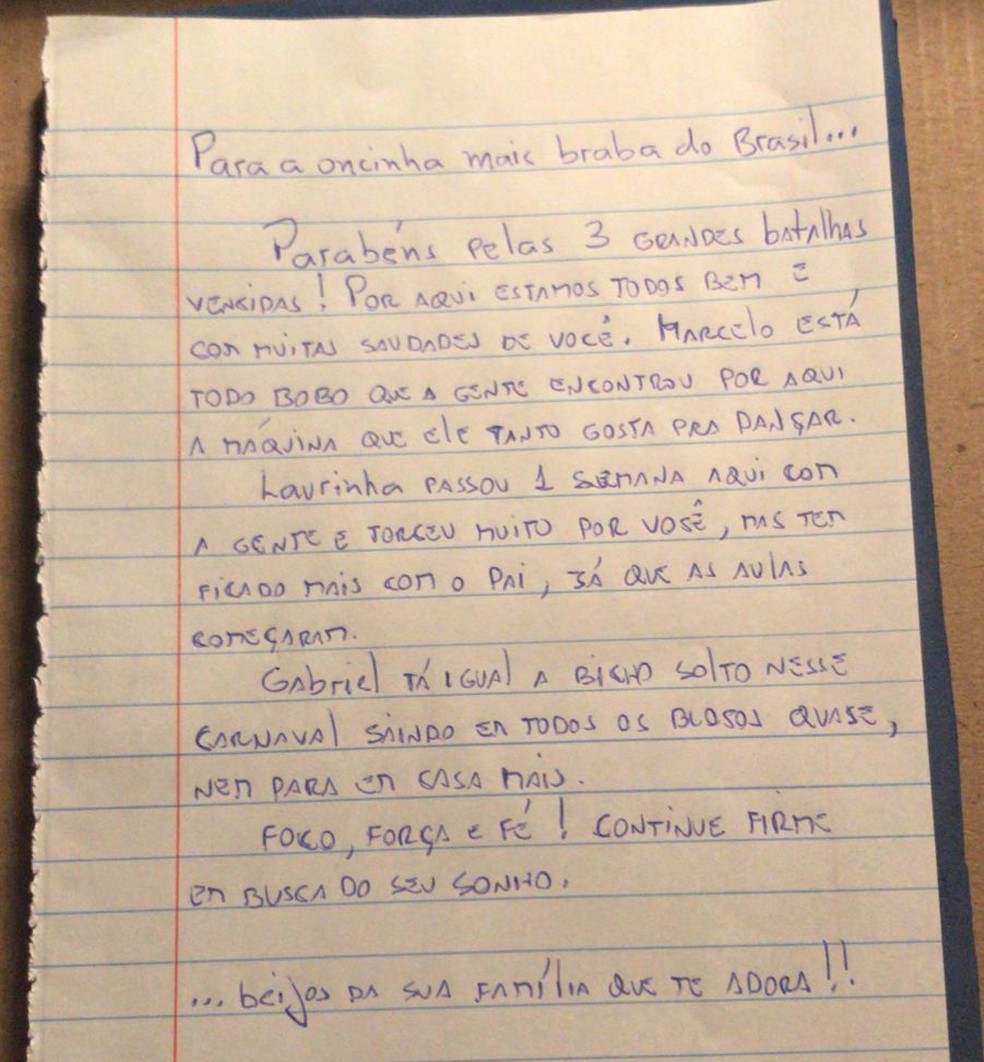 Para a oncinha mais braba do Brasil...
Parabéns pelas 3 GRANDES bATAlHAS
VENCIDAS! POR AQUI ESTAMOS TODOS BEM E
COM MUITAS SAUDADES DE VOCÊ. MARCElO ESTÁ
TODO BOBO QUE A GENTE ENCONTROU POR AQUI
A MÁQUINA QUE ElE TANTO GOSTA PRA DANÇAR.
Laurinha PASSOU 1 SEMANA AQUI COM
A GENTE E TORCEU MUITO POR VOCÊ, MAS TEM
FICADO MAIS COM O PAI, JÁ QUE AS AULAS
COMEÇARAM.
GAbriel TÁ IGUAl A BICHO SOlTO NESSE
CARNAVAl SAINDO EM TODOS OS BLOCOS QUASE,
NEM PARA EM CASA MAIS.
FOCO, FORÇA E FÉ! CONTINUE FIRME
EM BUSCA DO SEU SONHO.
... beijos DA SUA FAMÍlIA QUE TE ADORA!!